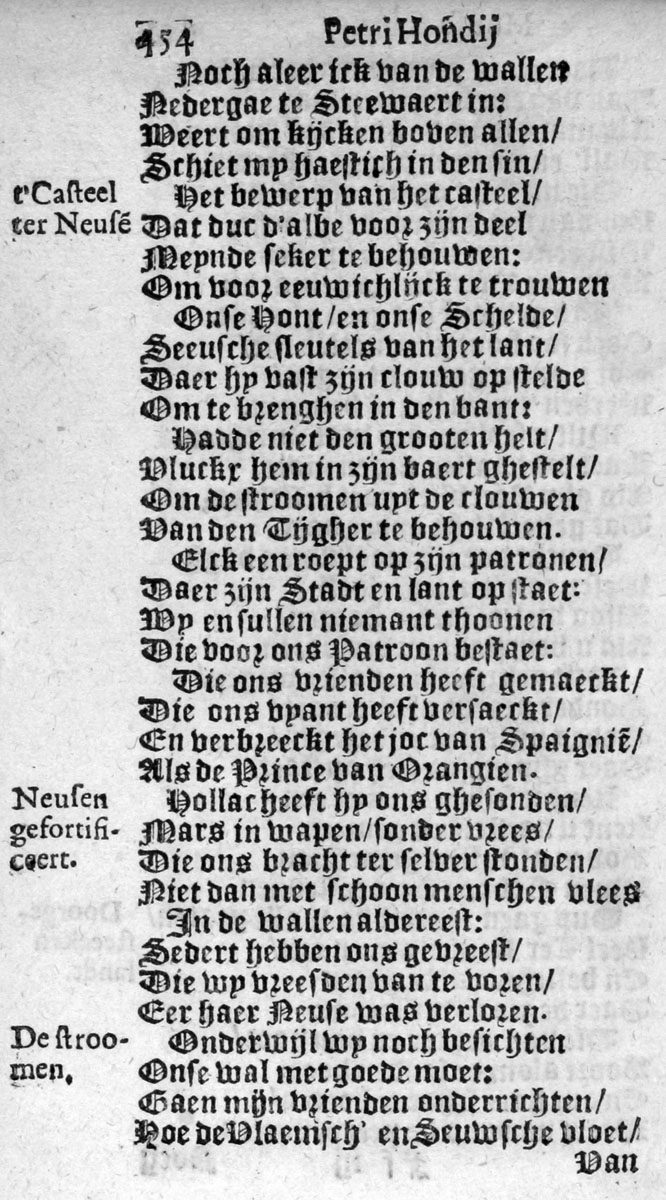 454 Petri Hoñdij
Noch aleer ick van de wallen
Nedergae te Steewaert in:
Weert om kijcken boven allen/
Schiet my haestich in den sin/
t'Casteel
ter Neusē
Het bewerp van het casteel/
Dat duc d'albe voor zijn deel
Meynde seker te behouwen:
Om voor eeuwichlijck te trouwen
Onse Hont/en onse Schelde/
Seeusche sleutels van het lant/
Daer hy vast zijn clouw op stelde
Om te brenghen in den bant:
Hadde niet den grooten helt/
Vluckx hem in zijn baert ghestelt/
Om de stroomen uyt de clouwen
Van den Tijgher te behouwen.
Elck een roept op zijn patronen/
Daer zijn Stadt en lant op staet:
Wy en sullen niemant thoonen
Die voor ons Patroon bestaet:
Die ons vrienden heeft gemaeckt/
Die ons vyant heeft versaeckt/
En verbreeckt het joc van Spaigniē/
Als de Prince van Orangien.
Neusen
gefortifi-
ceert.
Hollac heeft hy ons ghesonden/
Mars in wapen/sonder vrees/
Die ons bracht ter selver stonden/
Niet dan met schoon menschen vlees
In de wallen aldereest:
Sedert hebben ons gevreest/
Die wy vreesden van te voren/
Eer haer Neuse was verloren.
De stroo-
men.
Onderwijl wy noch besichten
Onse wal met goede moet:
Gaen mijn vrienden onderrichten/
Hoe de Vlaemsch' en Seuwsche vloet/
Van